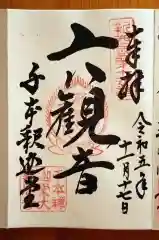 奉拝
令和五年
十一月十七日
六観音
千本釈迦堂